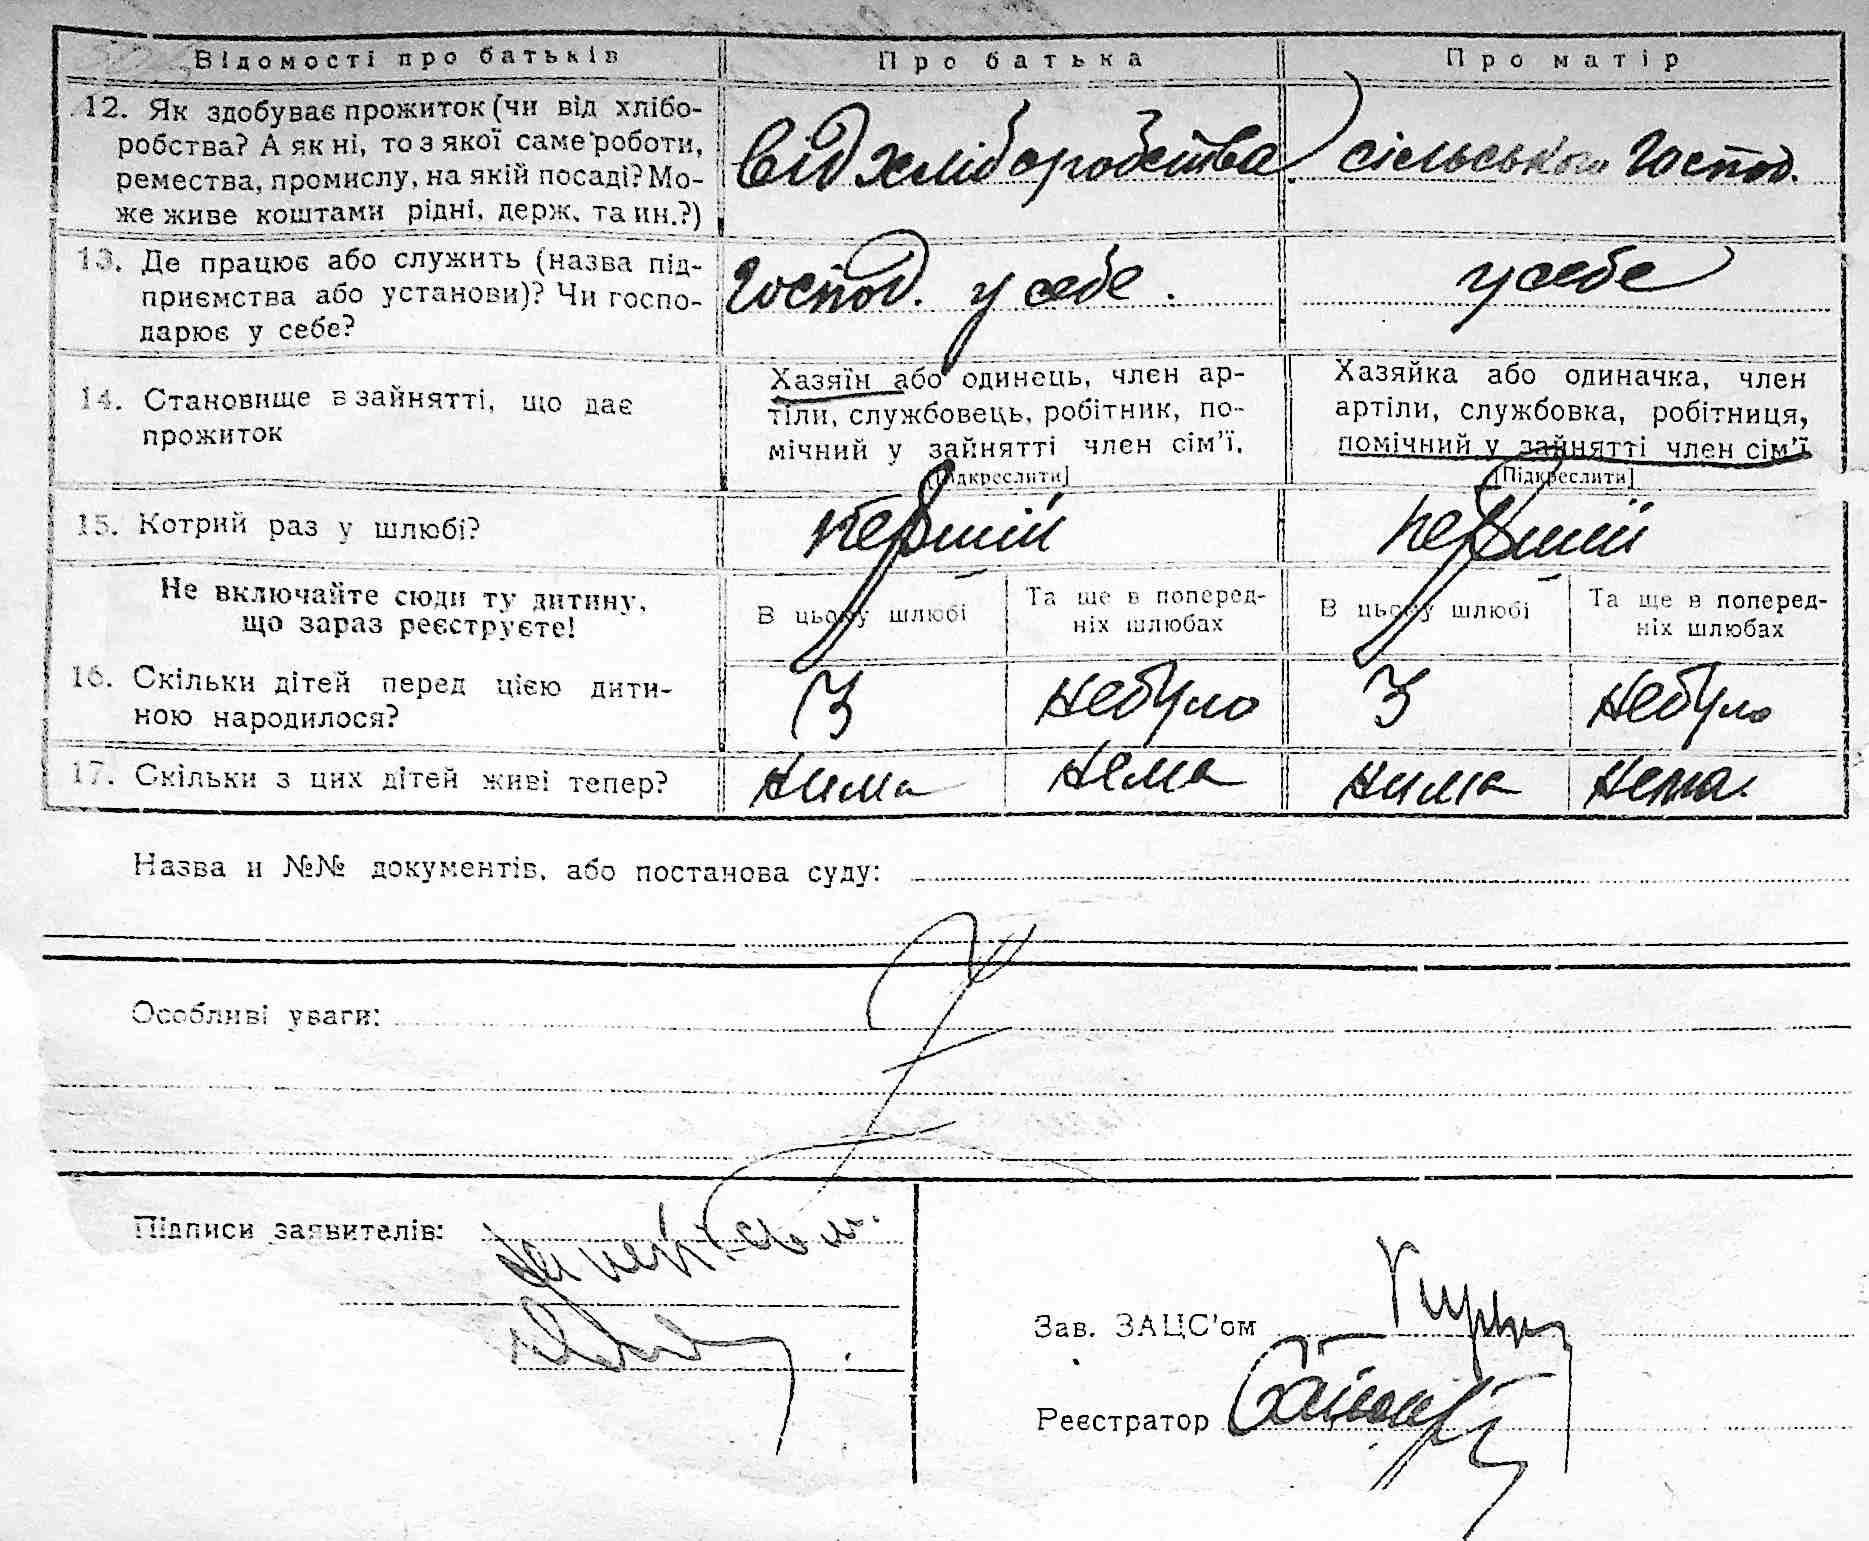 Відомості про батьків Про батька Про матір
12. Як здобуває прожиток (чи від хлібо-
робства? А як ні, то з якої саме роботи,
ремества, промислу, на якій посаді? Мо-
же живе коштами рідні, держ. та ин.?)
від хліборобства сільського господ.
13. Де працює або служить (назва під-
приємства або установи)? Чи госпо-
дарює у себе?
Господ. у себе. у себе
14. Становище в зайнятті, що дає
прожиток
Хазяїн або одинець, член ар-
тіли, службовець, робітник, по-
мічний у зайнятті член сім'ї.
[Підкреслити]
Хазяйка або одиначка, член
артіли, службовка, робітниця,
помічний у зайнятті член сім'ї
[Підкреслити]
15. Котрий раз у шлюбі? перший перший
Не включайте сюди ту дитину,
що зараз реєструєте!
В цьому шлюбі
Та ще в поперед-
ніх шлюбах
В цьому шлюбі
Та ще в поперед-
ніх шлюбах
16. Скільки дітей перед цією дити-
ною народилося?
3 небуло 3 небуло
17. Скільки з цих дітей живі тепер? нима нема нима нема.
Назва й №№ документів, або постанова суду:
Особливі уваги:
Підписи заявителів:
Зав. ЗАЦС'ом
Реєстратор